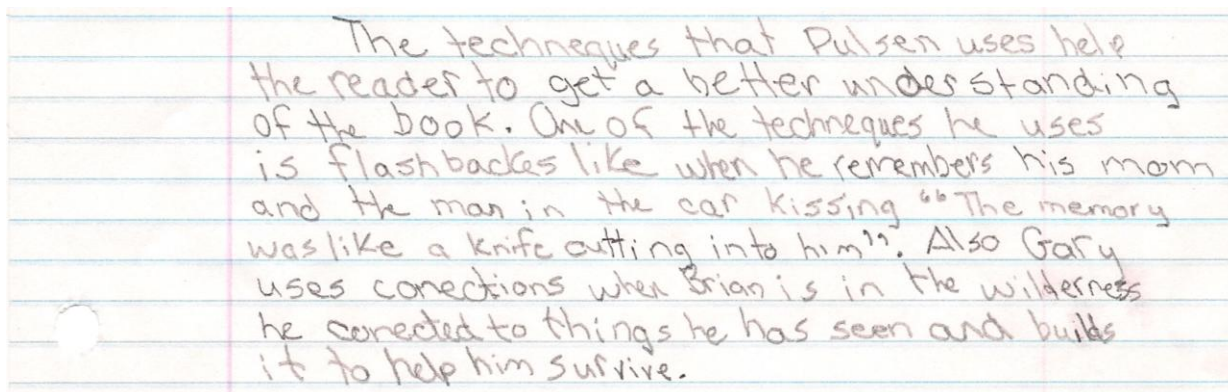 The techneques that Pulsen uses help
the reader to get a better understanding
of the book. One of the techneques he uses
is flashbackes like when he remembers his mom
and the man in the car kissing "The memory
was like a knife cutting into him". Also Gary
uses conections when Brian is in the wilderness
he conected to things he has seen and builds
it to help him survive.